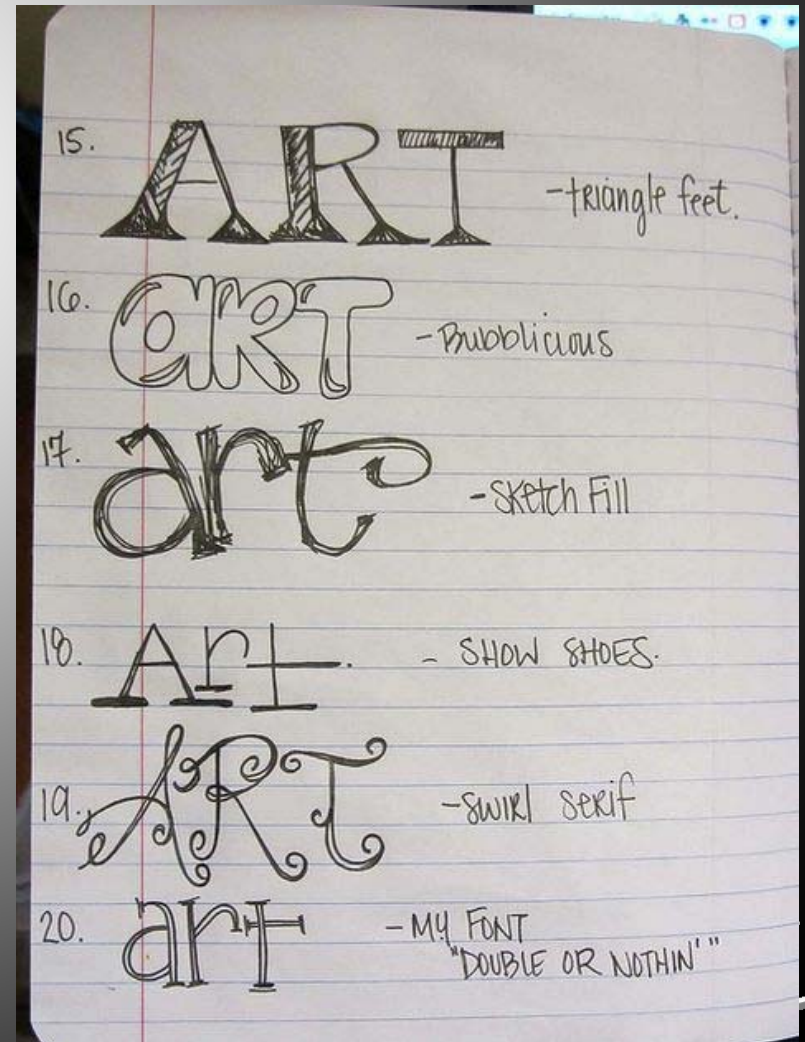 15. ART -triangle feet.
16. art -Bubblicious
17. art -Sketch Fill
18. Art. - SHOW SHOES.
19. ART -Swirl Serif
20. art -MY FONT
"DOUBLE OR NOTHIN'"